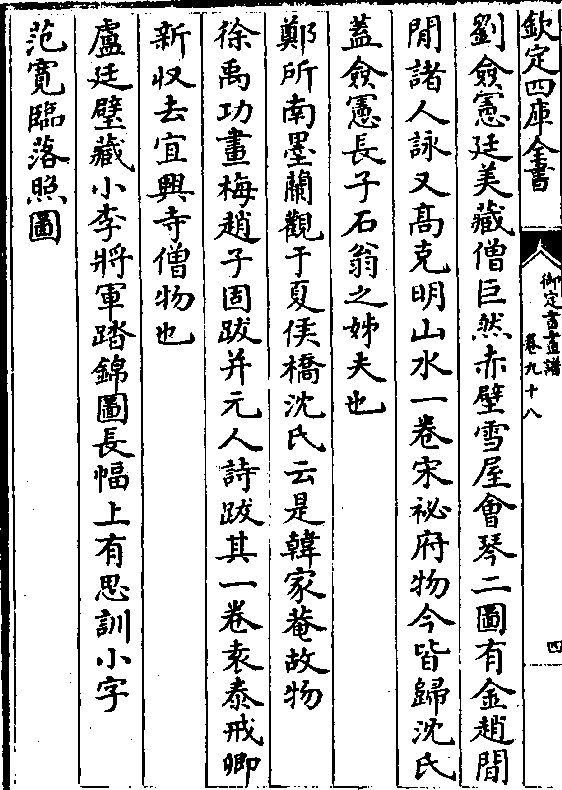 欽定四庫全書
御定書畫譜
卷九十八
四
劉僉憲廷美藏僧巨然赤壁雪屋會琴二圖有金趙間
閒諸人詠又高克明山水一卷宋祕府物今皆歸沈氏
蓋僉憲長子石翁之姊夫也
鄭所南墨蘭觀于夏侯橋沈氏云是韓家菴故物
徐禹功畫梅趙子固跋并元人詩跋其一卷袁泰戒卿
新收去宜興寺僧物也
盧廷璧藏小李將軍踏錦圖長幅上有思訓小字
范寛臨落照圖